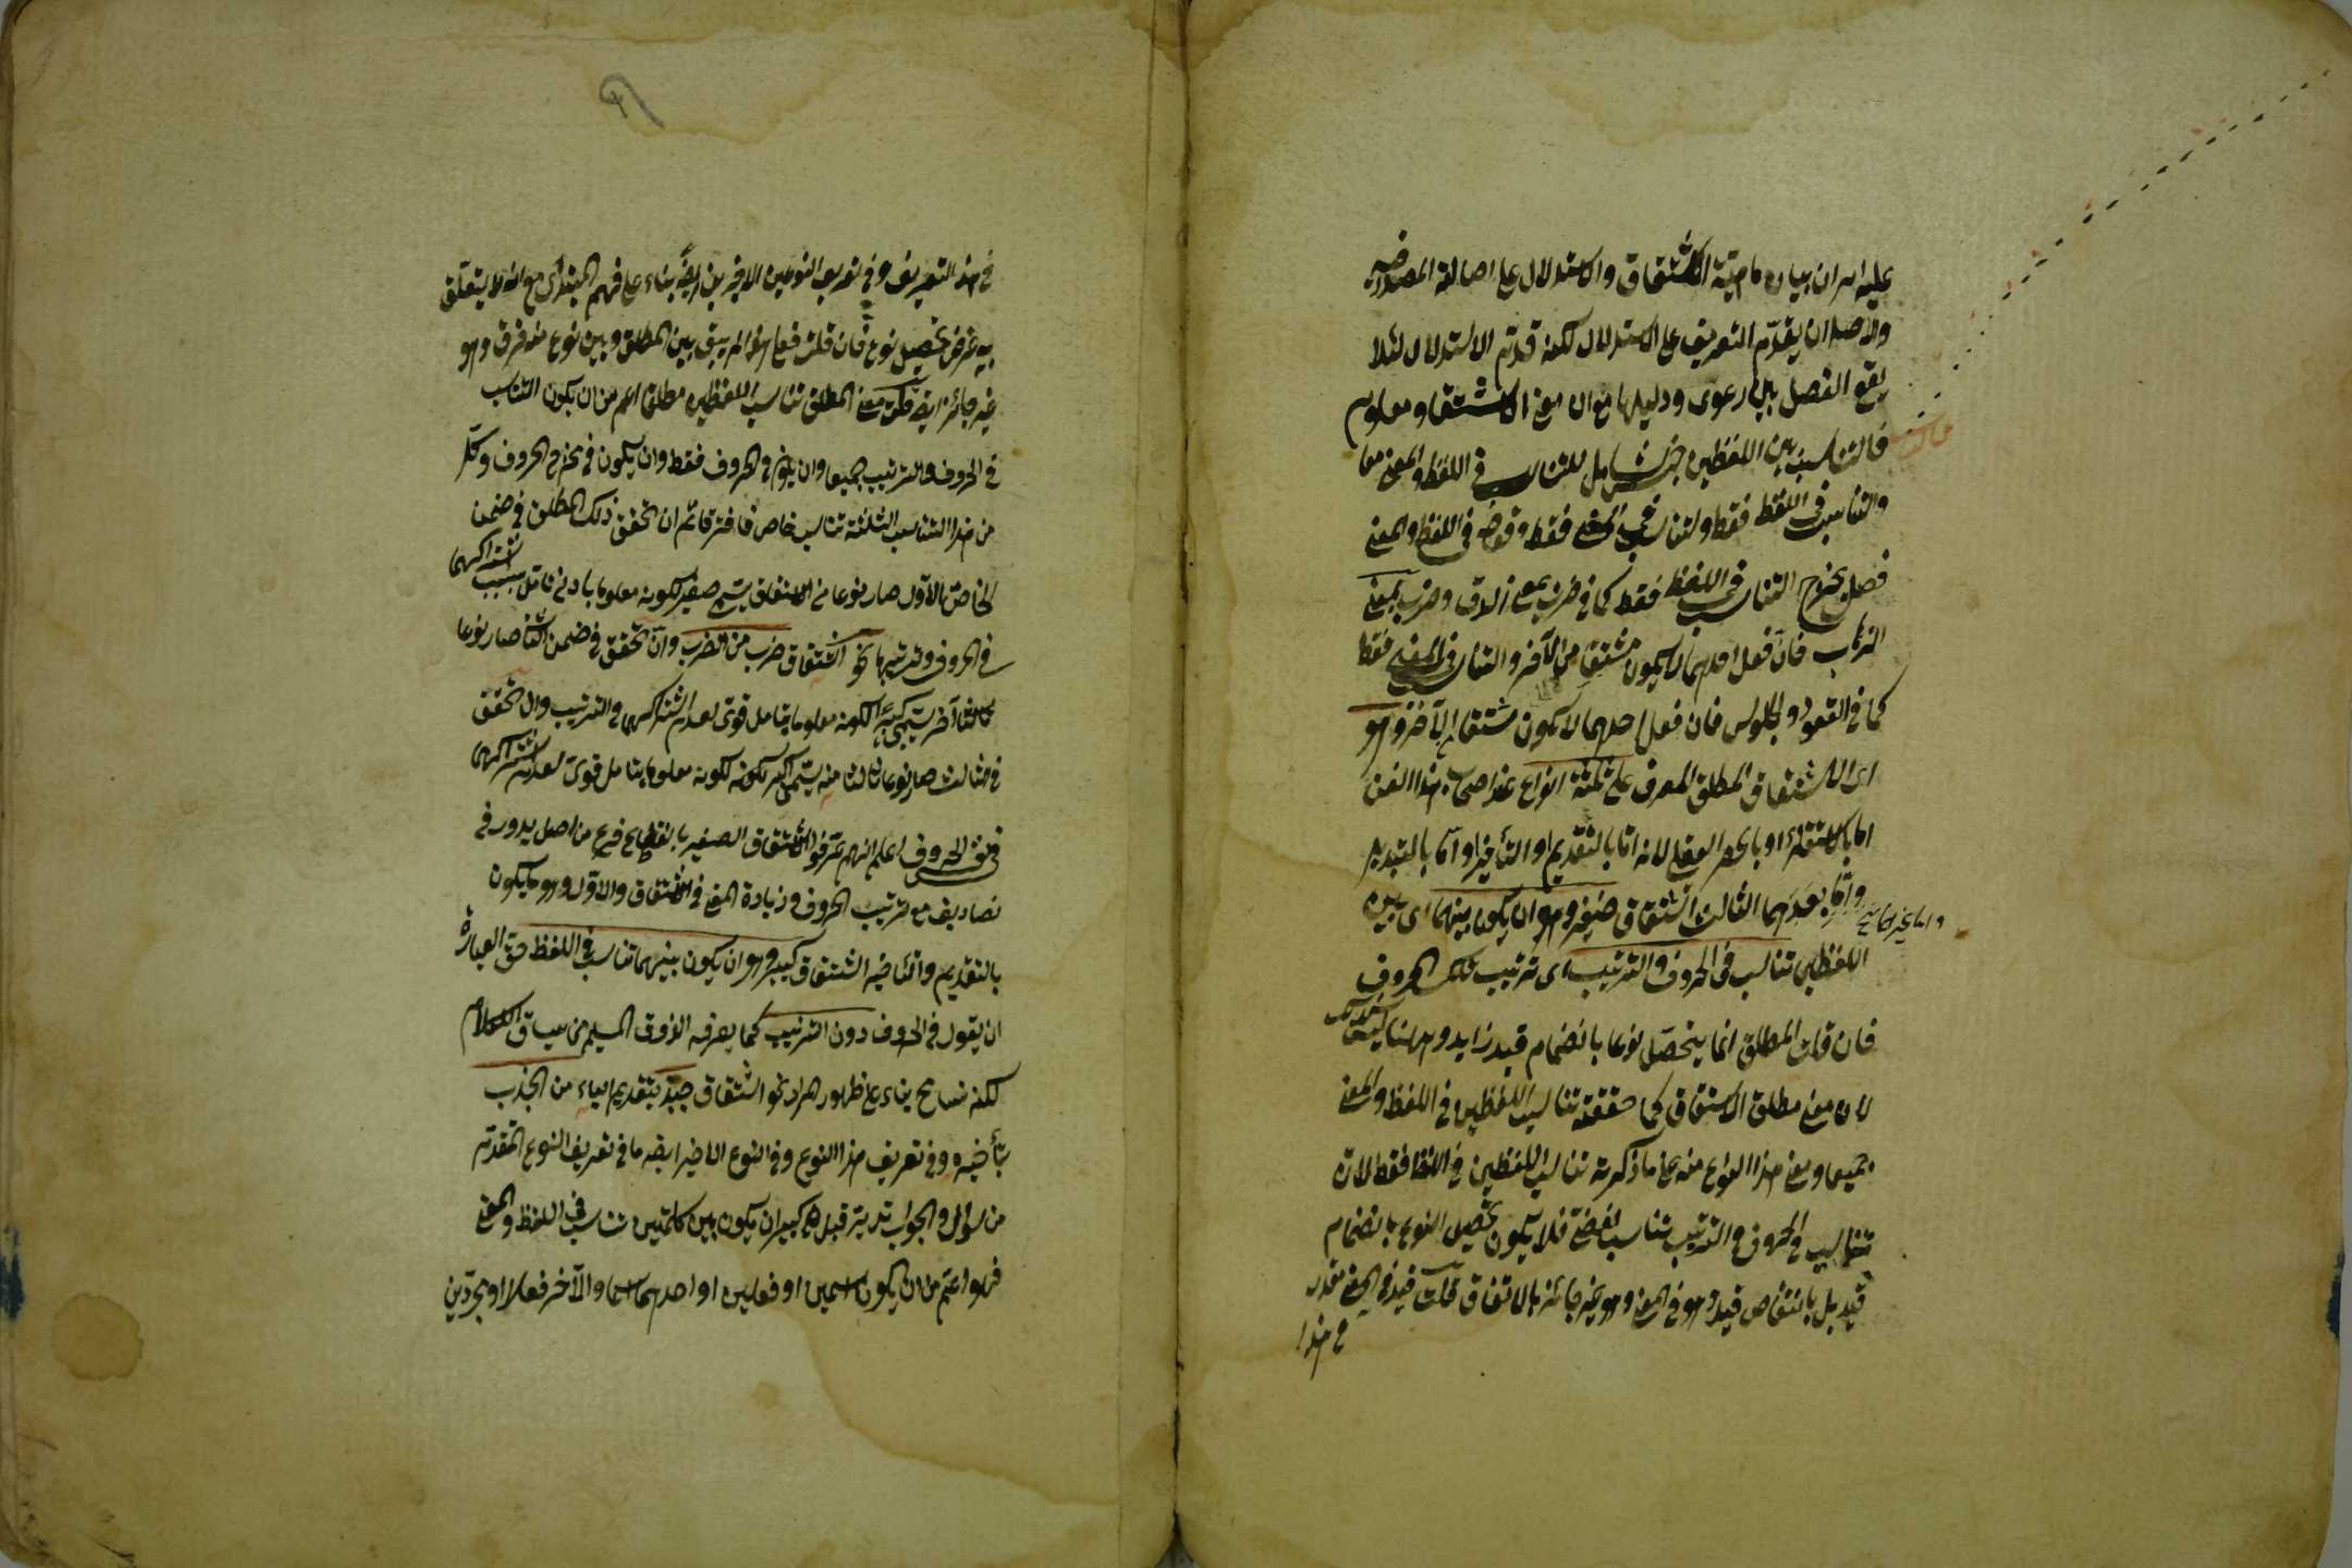 عليه اسران بيان ماهية الاشتقاق والاستدلال على اصالة المصدر
والاصل ان يقدم التعريف على الاستدلال لكنه قدم الاستدلال لئلا
يقع الفصل بين دعوى ودليلها مع ان معنى الاشتقاق معلوم
فالتناسب بين اللفظين جنس شامل للتناسب في اللفظ والمعنى معا
والتناسب في اللفظ فقط ولتناسب في المعنى فقط وقوله في اللفظ والمعنى
فصل يخرج التناسب في اللفظ فقط كما في ضرب بمعنى الدق وضرب بمعنى
الذهاب فان فعل احدهما لا يكون مشتقا من الآخر والتناسب في المعنى فقط
كما في القعود والجلوس فان فعل احدهما لا يكون مشتقا من الآخر وهو
اى الاشتقاق المطلق المعرف على ثلثة انواع عند اصحاب هذا الفن
اما بالاستقراء او بالحصر العقلي لانه اما بالتقديم او التأخير او اما بالتبديل
واما بعدمهما الثالث اشتقاق صغير وهو ان يكون بينهما اى بين
اللفظين تناسب في الحروف والترتيب اى ترتيب تلك الحروف
فان قلت المطلق انما يتحصل نوعا بانضمام قيد زايد وههنا ليس كذلك
لان معنى مطلق الاشتقاق كما حققته تناسب اللفظين في اللفظ والمعنى
جميعا ومعنى هذا النوع منه على ما ذكرته تناسب اللفظين في اللفظ فقط لان
تناسب في الحروف والترتيب تناسب لفظي فلا يكون تحصيل النوع بانضمام
قيد بل بانتقاص قيد وهو في المعنى وهو غير جائز بالاتفاق قلت قيد في المعنى مقدر
في هذا
في هذا التعريف وفي تعريف النوعين الاخيرين ايضا بناء على فهم المبتدى مع انه لا يتعلق
به غرض تحصيل نوع فان قلت فعلى هذا لم يبق بين المطلق وبين نوع منه فرق وهو
غير جائز ايضا قلت معنى المطلق تناسب اللفظين مطلقا اعم من ان يكون التناسب
في الحروف والترتيب جميعا وان يكون في الحروف فقط وان يكون في مخرج الحروف وكل
من هذا التناسب الثلثة تناسب خاص فافترقا ثم ان تحقق ذلك المطلق في ضمن
الخاص الاول صار نوعا من الاشتقاق يسمى صغير لكونه معلوما بادنى تأمل بسبب اشتراكهما
في الحروف وترتيبها نحو اشتقاق ضرب من الضرب وان تحقق في ضمن الثاني صار نوعا
آخر يسمى كبيرا لكونه معلوما بتأمل قوى لعدم اشتراكهما في الترتيب وان تحقق
في الثالث صار نوعا ثالثا منه يسمى اكبر لكونه معلوما بتأمل قوى لعدم اشتراكهما
في الحروف اعلم انهم عرفوا الاشتقاق الصغير بانقطاع فرع من اصل يدور في
تصاريفه مع ترتيب الحروف وزيادة المعنى في الاشتقاق والاول وهو ما يكون
بالتقديم والتأخير اشتقاق كبير وهو ان يكون بينهما تناسب في اللفظ حق العبارة
ان يقول في الحروف دون الترتيب كما يعرفه الذوق السليم من سياق الكلام
لكنه تسامح بناء على ظهور المراد نحو اشتقاق جبذ بتقديم الباء من الجذب
بتأخيره وفي تعريف هذا النوع وفي النوع الاخير ايضا ما في تعريف النوع المقدم
من سؤال والجواب تدبر قبل الكبير ان يكون بين كلمتين تناسب في اللفظ والمعنى
فهو اعم من ان يكون اسمين او فعلين او احدهما اسما والآخر فعلا او مجردين